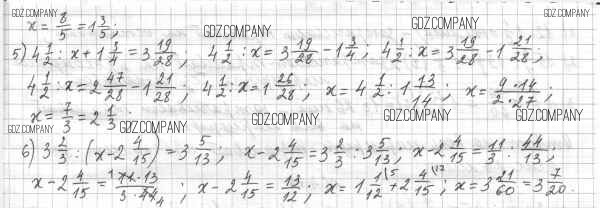 GDZ.COMPANY
x = 8/5 = 1 3/5;
GDZ.COMPANY
GDZ.COMPANY
GDZ.COMPANY
5) 4 1/2 : x + 1 3/4 = 3 19/28; 4 1/2 : x = 3 19/28 - 1 3/4; 4 1/2 : x = 3 19/28 - 1 21/28;
4 1/2 : x = 2 47/28 - 1 21/28; 4 1/2 : x = 1 26/28; x = 4 1/2 : 1 13/14; x = 9·14/2·27;
x = 7/3 = 2 1/3.
GDZ.COMPANY
GDZ.COMPANY
GDZ.COMPANY
GDZ.COMPANY
GDZ.COMPANY
6) 3 2/3 : (x - 2 4/15) = 3 5/13; x - 2 4/15 = 3 2/3 : 3 5/13; x - 2 4/15 = 11/3 : 44/13;
x - 2 4/15 = 11·13/3·44; x - 2 4/15 = 13/12; x = 1 1/12 + 2 4/15; x = 3 21/60 = 3 7/20.